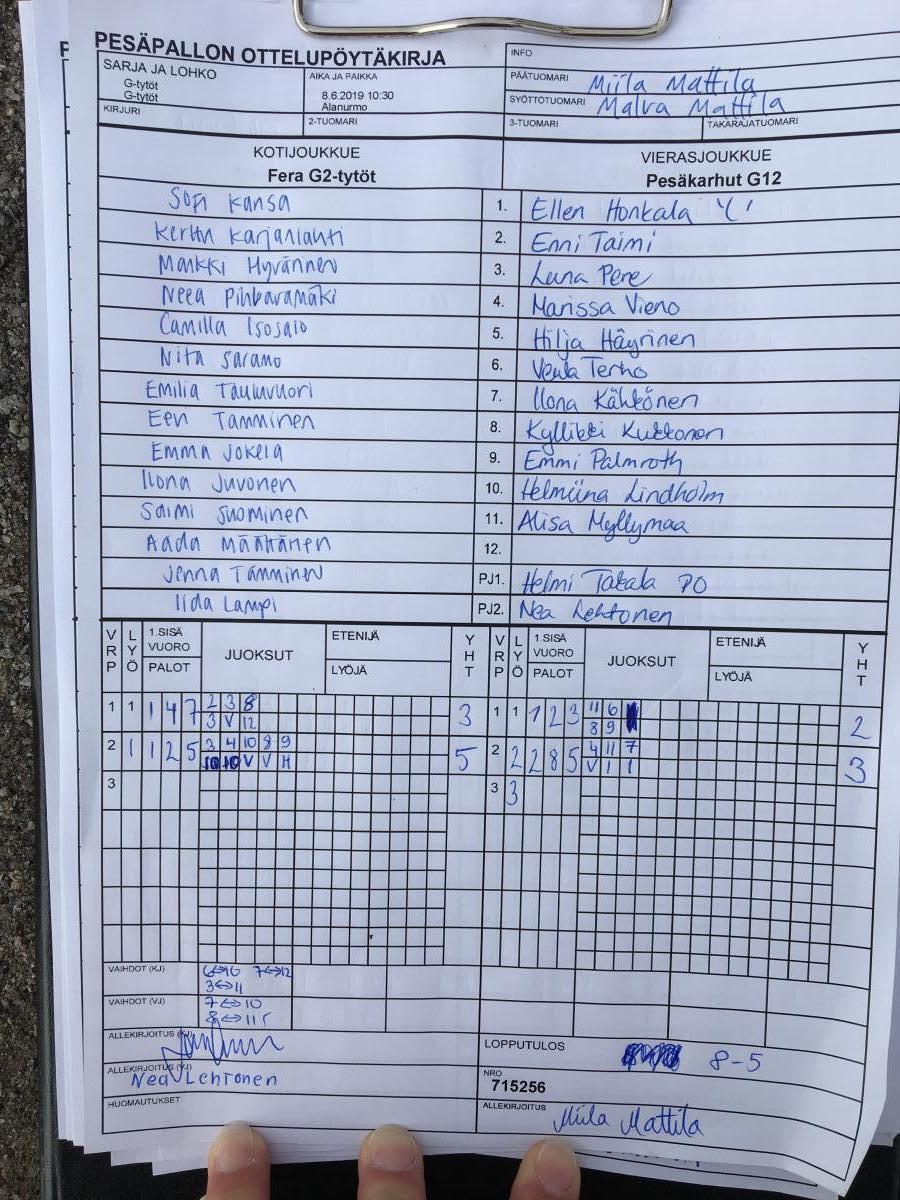 PESÄPALLON OTTELUPÖYTÄKIRJA
INFO
SARJA JA LOHKO
G-tytöt
G-tytöt
AIKA JA PAIKKA
8.6.2019 10:30
Alanurmo
PÄÄTUOMARI Miila Mattila
SYÖTTÖTUOMARI Malva Mattila
KIRJURI
2-TUOMARI
3-TUOMARI
TAKARAJATUOMARI
KOTIJOUKKUE
Fera G2-tytöt
VIERASJOUKKUE
Pesäkarhut G12
Sofi Kansa 1. Ellen Honkala
Kerttu Karjanlahti 2. Enni Taimi
Markki Hyvännen 3. Luna Pere
Neea Pihlavamäki 4. Marissa Vieno
Camilla Isosalo 5. Hilja Häyrinen
Nita Saramo 6. Venla Terho
Emilia Tauluvuori 7. Ilona Kähkönen
Eeri Tamminen 8. Kyllikki Kukkonen
Emma Jokela 9. Emmi Palmroth
Ilona Juvonen 10. Helmiina Lindholm
Saimi Suominen 11. Alisa Myllymaa
Aada Määttänen 12.
Jenna Tamminen PJ1. Helmi Takala PO
Iida Lampi PJ2. Nea Lehtonen
VRP LYÖ 1.SISÄ VUORO PALOT JUOKSUT ETENIJÄ LYÖJÄ YHT VRP LYÖ 1.SISÄ VUORO PALOT JUOKSUT ETENIJÄ LYÖJÄ YHT
1 1 1 4 7 2 3 8 3 1 1 1 2 3 11 6 2
3 V 12 8 9
2 1 1 2 5 3 4 10 8 9 5 2 2 2 8 5 4 11 7 3
10 10 V V H V 1 1
3 3 3
VAIHDOT (KJ) 6↔10 7↔12
3↔11
VAIHDOT (VJ) 7↔10
8↔11
ALLEKIRJOITUS (KJ)
LOPPUTULOS 8-5
ALLEKIRJOITUS (VJ)
Nea Lehtonen
NRO
715256
HUOMAUTUKSET
ALLEKIRJOITUS
Miila Mattila